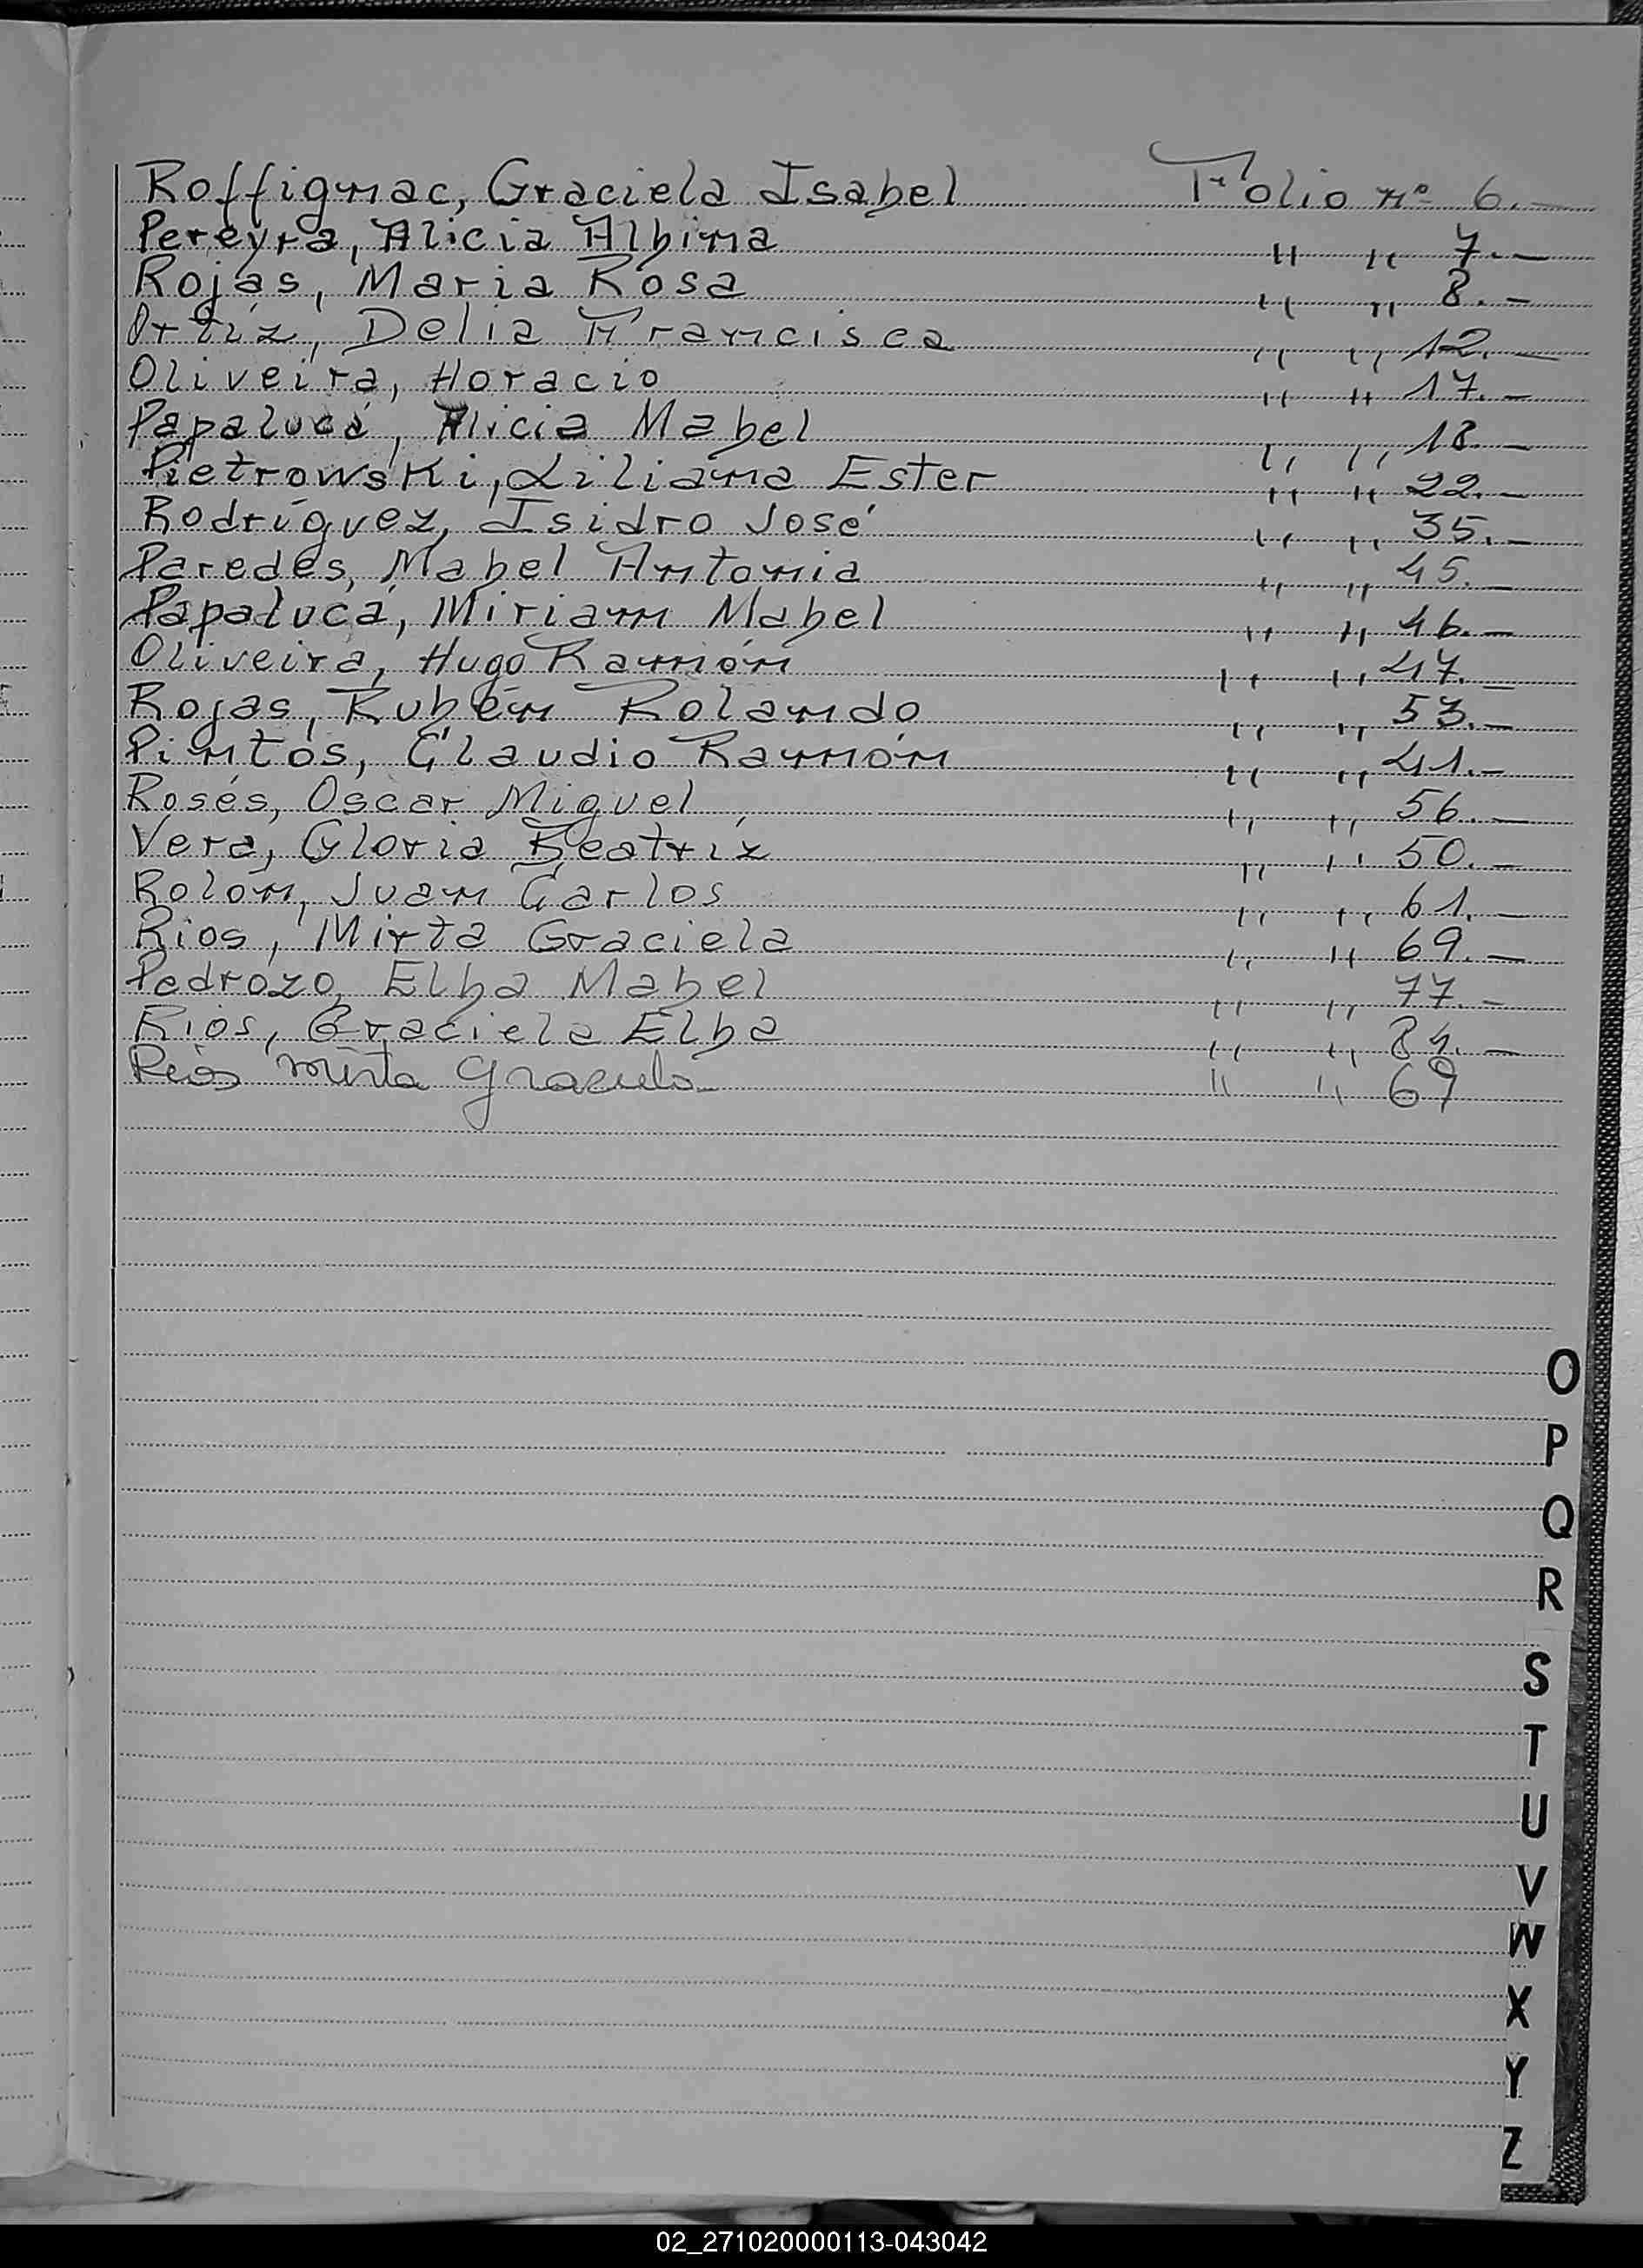 Roffignac, Graciela Isabel Folio nº 6.-
Pereyra, Alicia Albina " " 7.-
Rojas, Maria Rosa " " 8.-
Ortíz, Delia Francisca " " 12.-
Oliveira, Horacio " " 17.-
Papalucá, Alicia Mabel " " 18.-
Pietrowski, Liliana Ester " " 22.-
Rodríguez, Isidro José " " 35.-
Paredes, Mabel Antonia " " 45.-
Papalucá, Miriam Mabel " " 46.-
Oliveira, Hugo Ramón " " 47.-
Rojas, Rubén Rolando " " 53.-
Pintos, Claudio Ramón " " 41.-
Rosés, Oscar Miguel " " 56.-
Vera, Gloria Beatríz " " 50.-
Rolón, Juan Carlos " " 61.-
Rios, Mirta Graciela " " 69.-
Pedrozo, Elba Mabel " " 77.-
Rios, Graciela Elba " " 84.-
Rios Mirta Graciela " " 69
O
P
Q
R
S
T
U
V
W
X
Y
Z
02_271020000113-043042